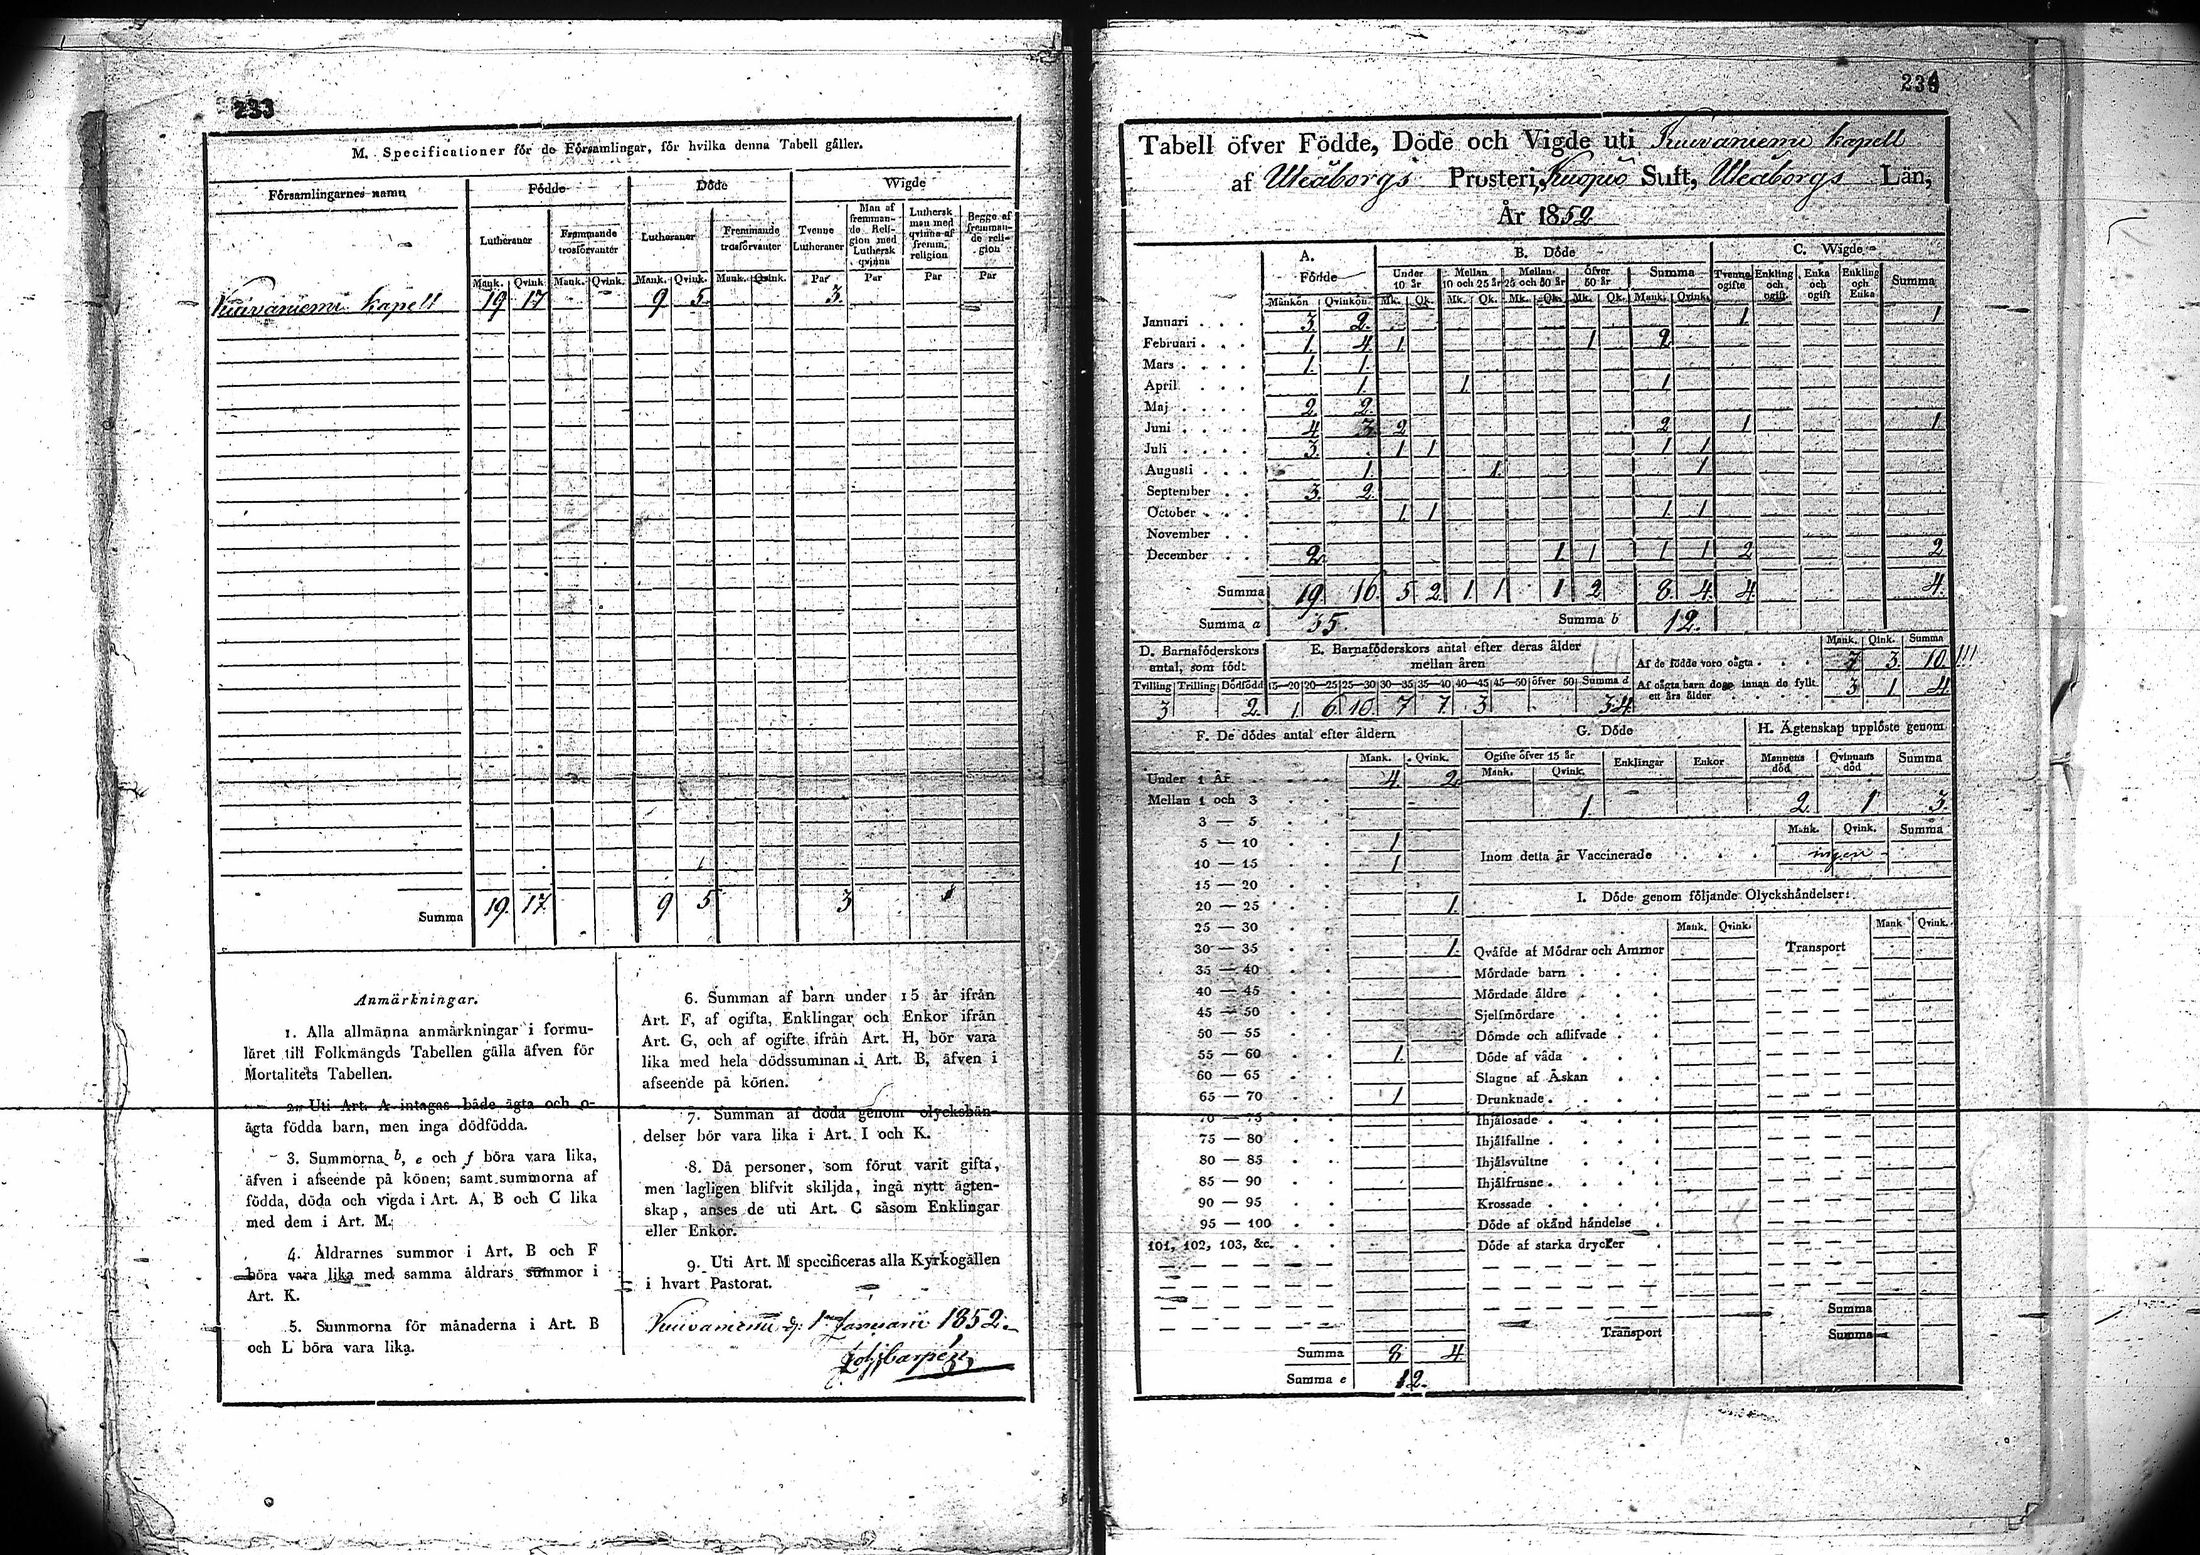 233
M. Specificationer för de Församlingar, för hvilka denna Tabell gäller.
Församlingarnes namn Födde Döde Wigde
Lutheraner Fremmande trosförvanter Lutheraner Fremmande trosförvanter Tvenne Lutheraner Man af fremmande Religion med Luthersk qvinna Luthersk man med qvinna af fremm. religion Begge af fremmande religion
Mank. Qvink. Mank. Qvink. Mank. Qvink. Mank. Qvink. Par Par Par Par
Kuivaniemi kapell 19 17 - - 9 5 3.
Summa 19. 17. 9 5 3
Anmärkningar.
1. Alla allmänna anmärkningar i formu-
läret till Folkmängds Tabellen gälla äfven för
Mortalitets Tabellen.
2. Uti Art. A intagas både ägta och o-
ägta födda barn, men inga dödfödda.
3. Summorna b, e och f böra vara lika,
äfven i afseende på könen; samt summorna af
födda, döda och vigda i Art. A, B och C lika
med dem i Art. M.
4. Åldrarnes summor i Art. B och F
böra vara lika med samma åldrars summor i
Art. K.
5. Summorna för månaderna i Art. B
och L böra vara lika.
6. Summan af barn under 15 år ifrån
Art. F, af ogifta, Enklingar och Enkor ifrån
Art. G, och af ogifte ifrån Art. H, bör vara
lika med hela dödssumman i Art. B, äfven i
afseende på könen.
7. Summan af döda genom olyckshän-
delser bör vara lika i Art. I och K.
8. Då personer, som förut varit gifta,
men lagligen blifvit skiljda, ingå nytt ägten-
skap, anses de uti Art. C såsom Enklingar
eller Enkor.
9. Uti Art. M specificeras alla Kyrkogällen
i hvart Pastorat.
Kuivaniemi d: 1 Januarii 1852.
234
Tabell öfver Födde, Döde och Vigde uti Kuivaniemi kapell
af Uleåborgs Prosteri, Kuopio Stift, Uleåborgs Län,
År 1852
A. B. Döde C. Wigde
Födde Under 10 år Mellan 10 och 25 år Mellan 25 och 50 år Öfver 50 år Summa Tvenne ogifte Enkling och ogift Enka och ogift Enkling och Enka Summa
Mankön Qvinkön Mk. Qk. Mk. Qk. Mk. Qk. Mk. Qk. Mank. Qvink.
Januari 3. 2. 1. 1
Februari 1. 4. 1. 1 2.
Mars 1. 1.
April 1. 1. 1
Maj 2. 2.
Juni 4. 3. 2 2 1 1
Juli 3. 1 1 1 1
Augusti 1. 1. 1
September 3. 2.
October 1. 1 1 1
November
December 2. 1. 1 1 1 2 2
Summa 19. 16. 5 2. 1. 1 1 2 8. 4. 4. 4.
Summa a 35. Summa b 12.
D. Barnaföderskors antal, som födt E. Barnaföderskors antal efter deras ålder mellan åren Mank. Qink. Summa
Af de födde voro oägta 7 3. 10. !!!
Af oägta barn dogo innan de fyllt ett års ålder 3 1 4
Tvilling Trilling Dödfödd 15—20 20—25 25—30 30—35 35—40 40—45 45—50 öfver 50 Summa d
3 2. 1. 6. 10. 7 7. 3 34
F. De dödes antal efter åldern G. Döde H. Ägtenskap upplöste genom
Mank. Qvink. Ogifte öfver 15 år Enklingar Enkor Mannens död Qvinnans död Summa
Mank. Qvink.
1. 2. 1 3.
Mank. Qvink. Summa
Inom detta år Vaccinerade ingen
Under 1 År 4. 2.
Mellan 1 och 3
3 — 5
5 — 10 1
10 — 15 1
15 — 20
20 — 25 1.
25 — 30
30 — 35 1.
35 — 40
40 — 45
45 — 50
50 — 55
55 — 60 1.
60 — 65
65 — 70 1
70 — 75
75 — 80
80 — 85
85 — 90
90 — 95
95 — 100
101, 102, 103, &c.
Summa 8 4
Summa e 12.
I. Döde genom följande Olyckshändelser:
Mank. Qvink. Mank Qvink.
Qväfde af Mödrar och Ammor Transport
Mördade barn
Mördade äldre
Sjelfmördare
Dömde och aflifvade
Döde af våda
Slagne af Åskan
Drunknade
Ihjälosade
Ihjälfallne
Ihjälsvultne
Ihjälfrusne
Krossade
Döde af okänd händelse
Döde af starka drycker
Summa
Transport Summa